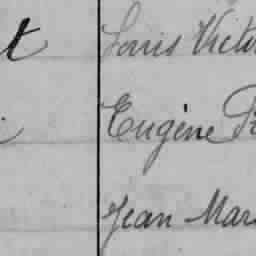 t Louis Victo
Eugène
Jean Mar